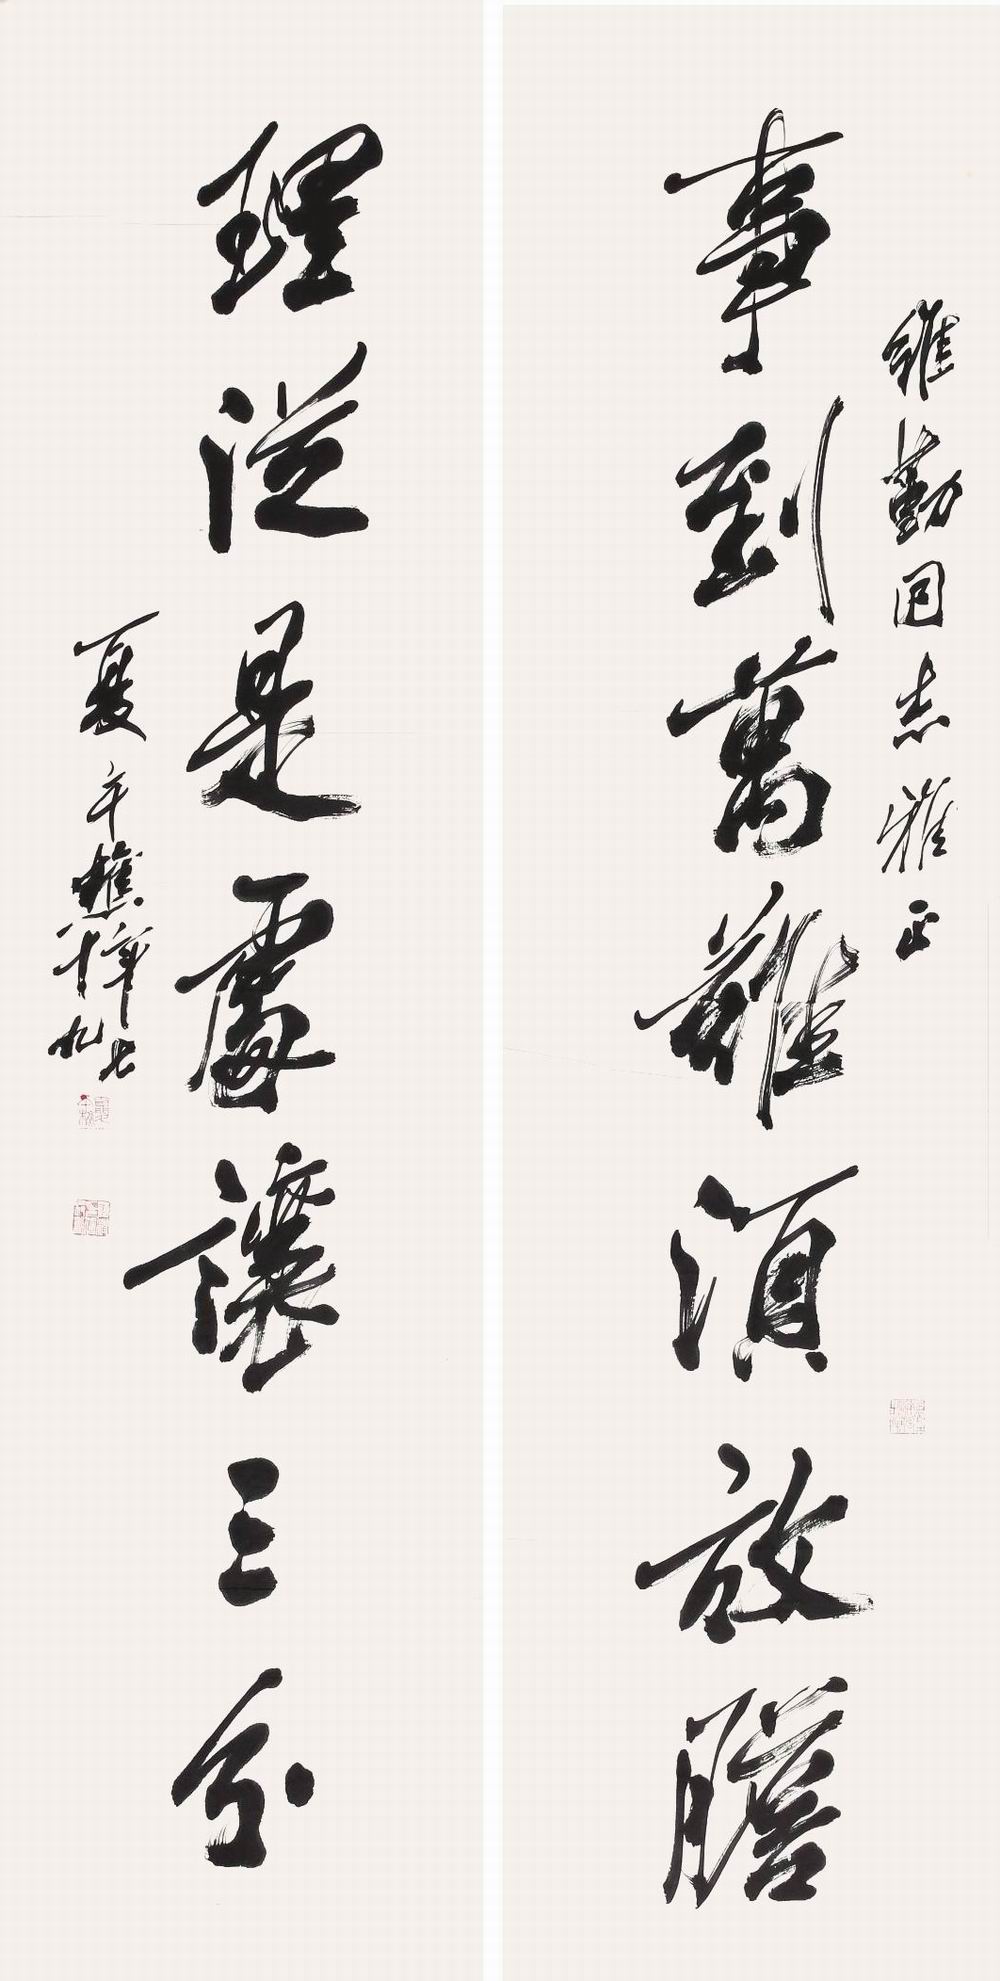 維勤同志雅正
事到萬難須放膽
理從是處讓三分
夏午樵率
七十九